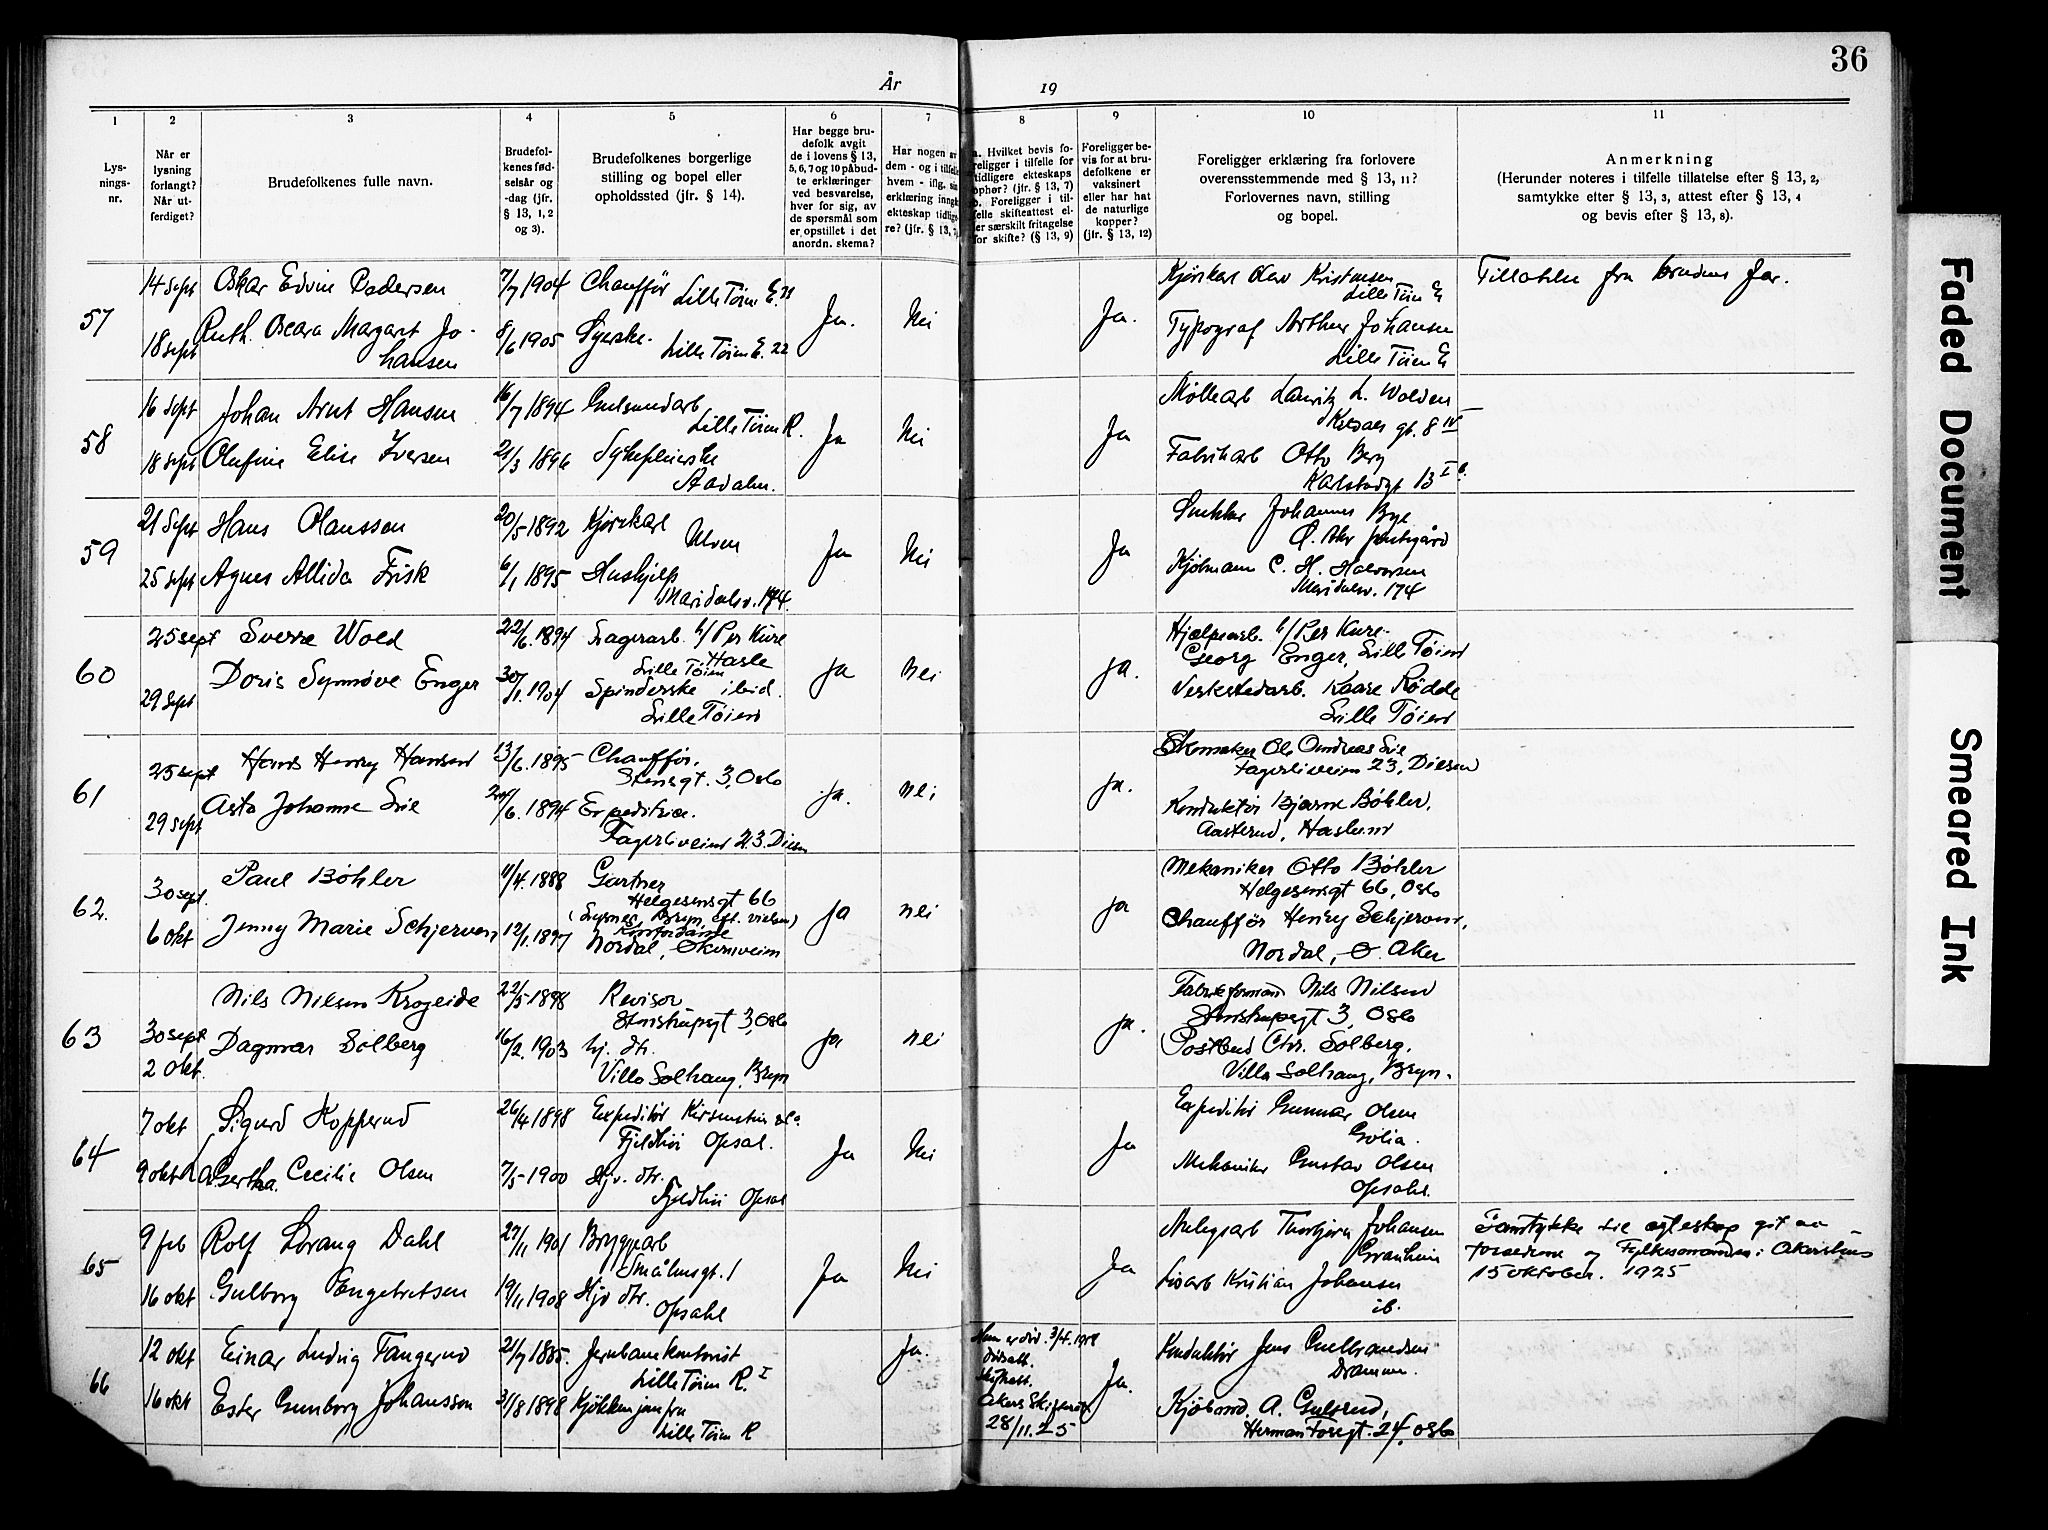 36
År 19
1 2 3 4 5 6 7 8 9 10 11
Lysnings-nr.
Når er lysning forlangt? Når utferdiget?
Brudefolkenes fulle navn.
Brudefolkenes fødselsår og -dag (jfr. § 13, 1, 2 og 3).
Brudefolkenes borgerlige stilling og bopel eller opholdssted (jfr. § 14).
Har begge brudefolk avgit de i lovens § 13, 5, 6, 7 og 10 påbudte erklæringer ved besvarelse, hver for sig, av de spørsmål som er opstillet i det anordn. skema?
Har nogen av dem - og i tilfelle hvem - iflg. sin erklæring inngått ekteskap tidligere? (jfr. § 13, 7)
a. Hvilket bevis foreligger i tilfelle for tidligere ekteskaps ophør? (jfr. § 13, 7)
b. Foreligger i tilfelle skifteattest eller særskilt fritagelse for skifte? (§ 13, 9)
Foreligger bevis for at brudefolkene er vaksinert eller har hat de naturlige kopper? (jfr. § 13, 12)
Foreligger erklæring fra forlovere overensstemmende med § 13, 11? Forlovernes navn, stilling og bopel.
Anmerkning
(Herunder noteres i tilfelle tillatelse efter § 13, 2, samtykke efter § 13, 3, attest efter § 13, 4 og bevis efter § 13, 8).
57
14 sept
18 sept
Oskar Edvin Pedersen
Ruth Oscara Margaret Johansen
7/7 1904
8/6 1905
Chauffør
Lille Tøien E.
Syerske.
Lille Tøien E. 22
Ja.
Nei
Ja.
Kjørekar Olav Kristensen
Lille Tøien E
Typograf Arthur Johansen
Lille Tøien E
Tillatelse fra brudens far.
58
16 sept
18 sept
Johan Arnt Hansen
Olufine Elise Iversen
16/7 1894
21/3 1896
Lille Tøien R.
Sykepleierske
Ja
Nei
Ja
Møllearb Lauritz L. Wolden
gt. 8 IV
Fabrikarb Otto Berg
Karlstadgt 13 I
59
21 sept
25 sept
Hans Olaussen
Agnes Allida Frisk
20/5 1892
6/1 1895
Kjørekarl
Ulven
Hushjelp
Maridalsv. 174
Ja
Nei
Ja
Snekker Johannes Bye
Ø. Aker prestegård
Kjøbmann C. H. Halvorsen
Maridalsv. 174
60
25 sept
29 sept
Sverre Wold
Doris Synnøve Enger
22/6. 1894
30/1. 1904
Lagerarb. h/ Per Kure
Hasle
Lille Tøien
Spinderske ibid.
Lille Tøien
ja
nei
ja.
Hjælpearb. h/ Per Kure.
Georg Enger, Lille Tøien
Verkstedarb. Kaare Rødde
Lille Tøien
61
25 sept
29 sept
Hans Henry Hansen
Asta Johanne Lie
13/6. 1895
/6. 1894
Chauffør.
Stensgt. 3, Oslo
Expeditrice.
Fagerliveien 23. Disen
ja.
nei
ja.
Skomaker Ole Andreas Lie
Fagerliveien 23, Disen
Konduktør Bjarne Bøhler,
Aasterud, Haslum
62.
30 sept.
6 okt
Paul Bøhler
Jenny Marie Schjerven
11/4. 1888
12/1. 1897
Gartner
Helgesensgt 66
(Lysnes, Bryn eft. vielsen)
Kontordame
Nordal, Økernveien
ja
nei
ja
Mekaniker Otto Bøhler
Helgesensgt 66, Oslo
Chauffør Henry Schjerven,
Nordal, Ø. Aker
63
30 sept
2 okt.
Nils Nilsen Krogeide
Dagmar Solberg
22/5 1898
16/2. 1903
Revisor
Stenstrupsgt 3, Oslo
hj. dtr.
Villa Solhaug, Bryn
ja
nei
ja.
Fabrikformand Nils Nilsen
Stenstrupsgt 3, Oslo
Postbud Chr. Solberg.
Villa Solhaug, Bryn.
64
7 okt
9 okt
Sigurd Kopperud
Bertha Cecilie Olsen
26/4 1898
7/5 1900
Expeditør
Fjeldhøi Opsal.
Hjv. dtr.
Fjeldhøi Opsal
Ja
Nei
Ja
Expeditør Gunnar Olsen
Golia.
Mekaniker Gustav Olsen
Opsahl.
65
9 feb
16 okt
Rolf Lorang Dahl
Gulborg Engebretsen
27/11 1901
19/11 1908
Bryggearb
Smålensgt. 1
Hjv dtr.
Opsahl
Ja
Nei
Ja
Anlegsarb Thorbjørn Johansen
Granheim
Kristian Johansen
ib.
Samtykke til egteskap git av
forældrene og Fylkesmanden i Akershus
15 oktober. 1925
66
12 okt
16 okt
Einar Ludvig Tangerud
Ester Gunborg Johansson
21/7 1885.
31/8 1898
Jernbanekontorist
Lille Tøien R. I
Kjøkkenjomfru
Lille Tøien R
Ja.
Hun er død. 3/4. 1918
Dødsatt.
Skifteatt.
Akers Skifterett
28/11. 25
Ja.
Konduktør Jens Gulbrandsen
Drammen.
Kjøbmd. A. Gulsrud,
Herman Fossgt. 24, Oslo
Faded Document
Smeared Ink